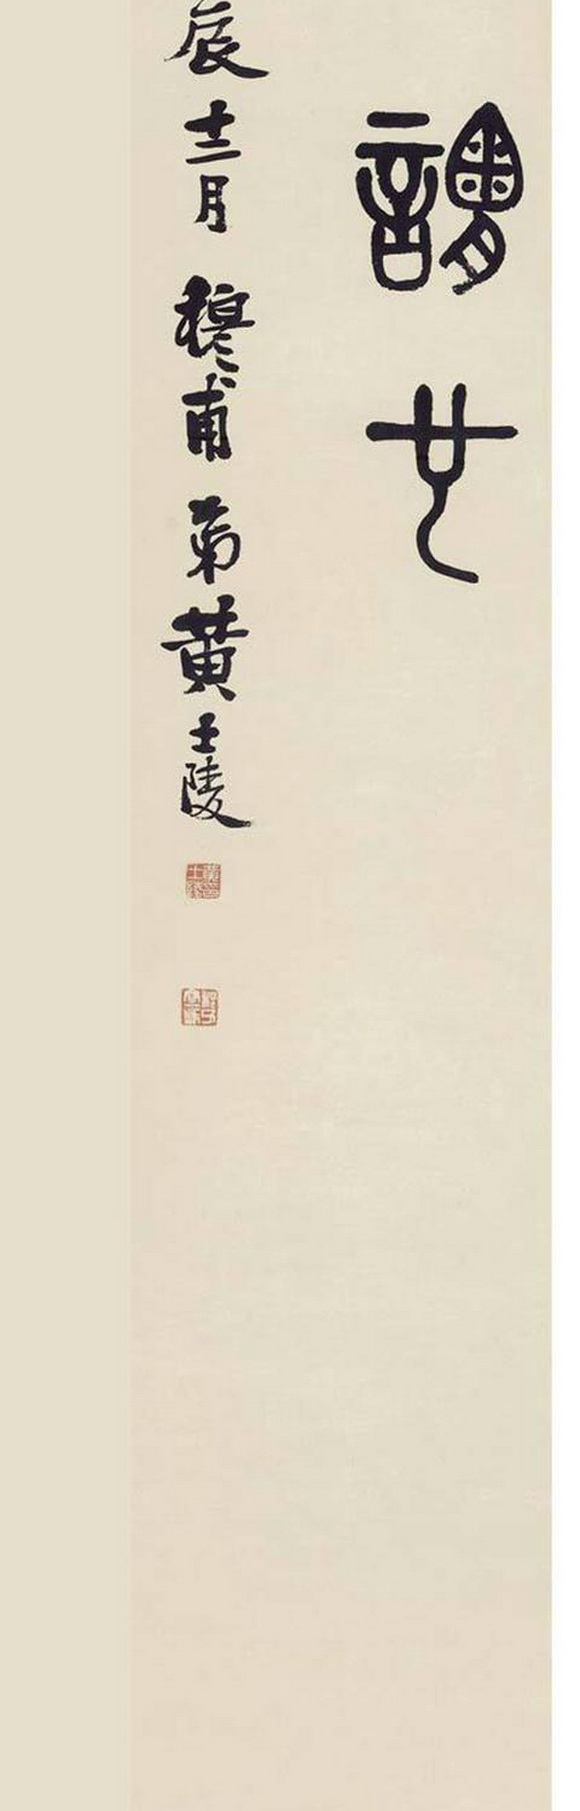 謂也
辰十二月穆甫弟黃士陵